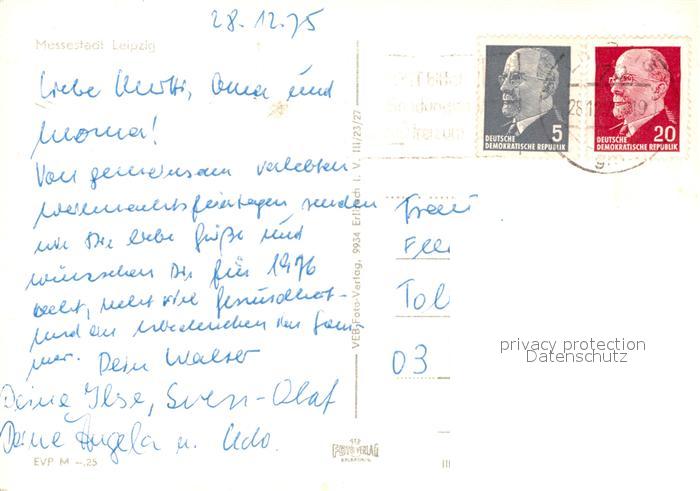 28.12.75
Messestadt Leipzig
Liebe Mutti, Oma und
Mama!
Von gemeinsam verlebten
Weihnachtsfeiertagen senden
wir Dir liebe Grüße und
wünschen Dir für 1976
recht, recht viel Gesundheit
und ein Wiedersehen im Som-
mer. Dein Walter
Deine Ilse, Sven-Olaf
Deine Angela u. Udo.
EVP M -,25
VEB Foto-Verlag, 9934 Erlbach i. V. III/23/27
5
DEUTSCHE
DEMOKRATISCHE REPUBLIK
20
DEUTSCHE
DEMOKRATISCHE REPUBLIK
Frau
Tol
03
privacy protection
Datenschutz
FOTO-VERLAG
ERLBACH
III